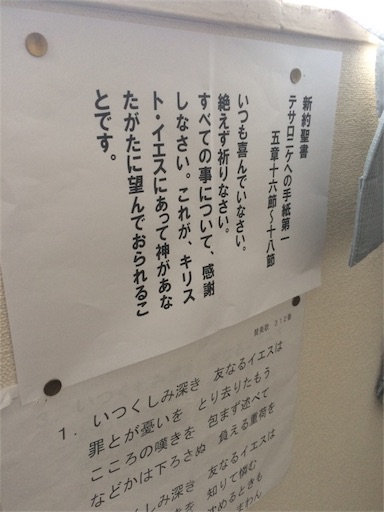 新約聖書
テサロニケへの手紙第一
五章十六節〜十八節
いつも喜んでいなさい。
絶えず祈りなさい。
すべての事について、感謝
しなさい。これが、キリス
ト・イエスにあって神があな
たがたに望んでおられるこ
とです。
讃美歌 312番
1. いつくしみ深き 友なるイエスは
罪とが憂いを とり去りたもう
こころの嘆きを 包まず述べて
などかは下ろさぬ 負える重荷を
くしみ深き 友なるイエスは
知りて憐む